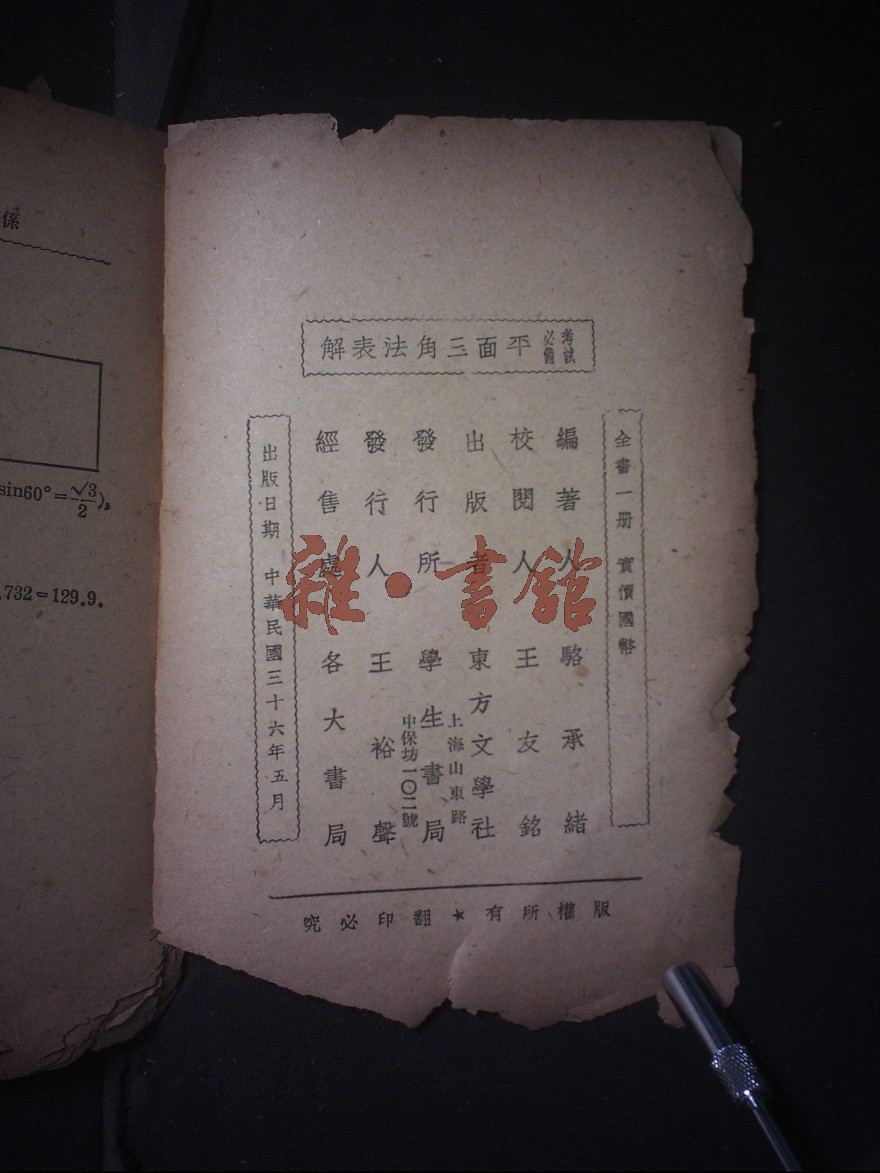 係
sin60°=√3/2),
.732=129.9.
考試必備 平面三角法表解
全書一册 實價國幣
編著人 駱承緒
校閱人 王友銘
出版者 東方文學社
發行所 學生書局
上海山東路
中保坊一〇二號
發行人 王裕聲
經售處 各大書局
出版日期 中華民國三十六年五月
版權所有★翻印必究
雜·書館